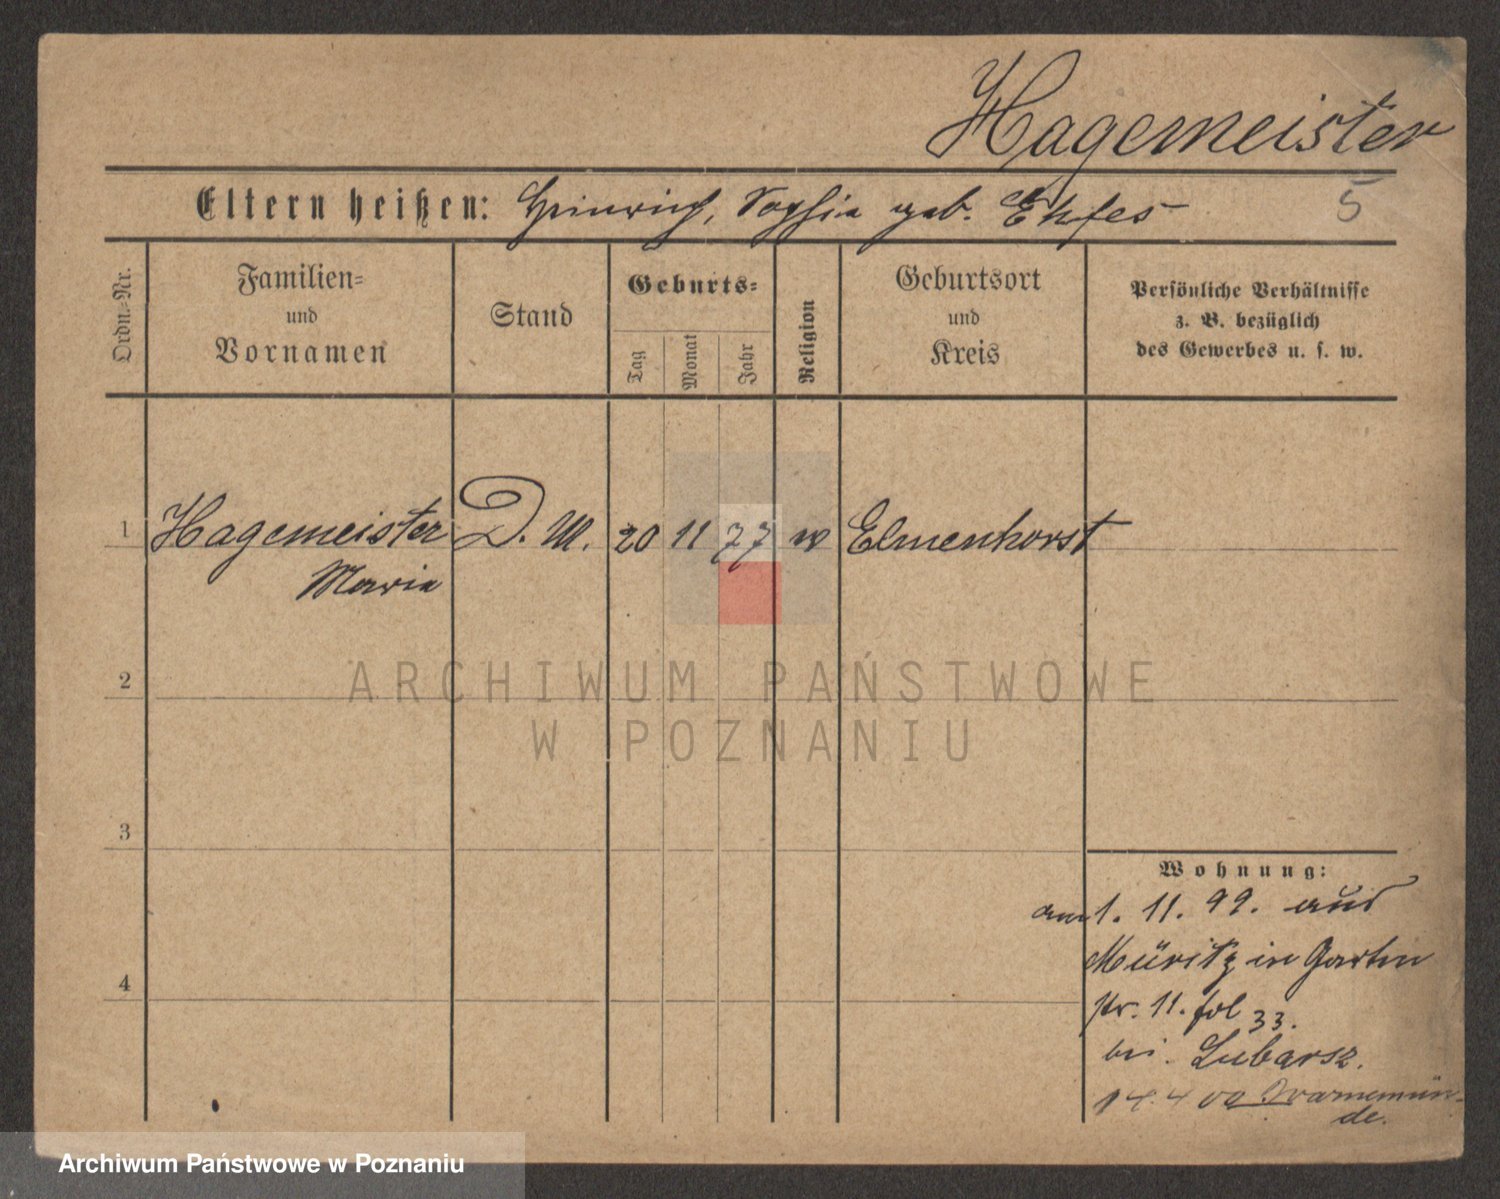 Hagemeister
Eltern heißen: Heinrich, Sophia geb. Ehfes
5
Ordn.-Nr.
Familien- und Vornamen
Stand
Geburts-
Tag
Monat
Jahr
Religion
Geburtsort und Kreis
Persönliche Verhältnisse
z. B. bezüglich
des Gewerbes u. s. w.
1 Hagemeister D. M. 20 11 77 Elmenhorst
Maria
2
ARCHIWUM PAŃSTWOWE
W POZNANIU
3
4
Wohnung:
am 1. 11. 99. aus
Müritz in Garten
str. 11. fol 33.
bei. Lubarsz.
14.4 00 Warnemün-
de.
Archiwum Państwowe w Poznaniu